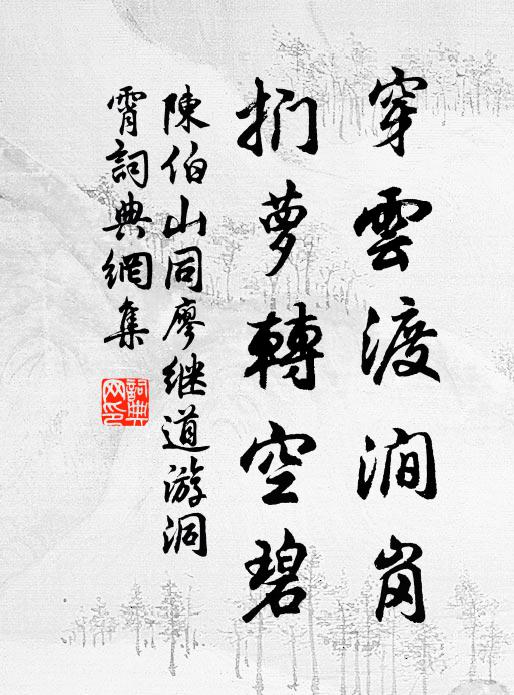 穿雲渡澗岗
捫萝轉空碧
陳伯山同廖继道游洞
霄詞典網集
詞典网印